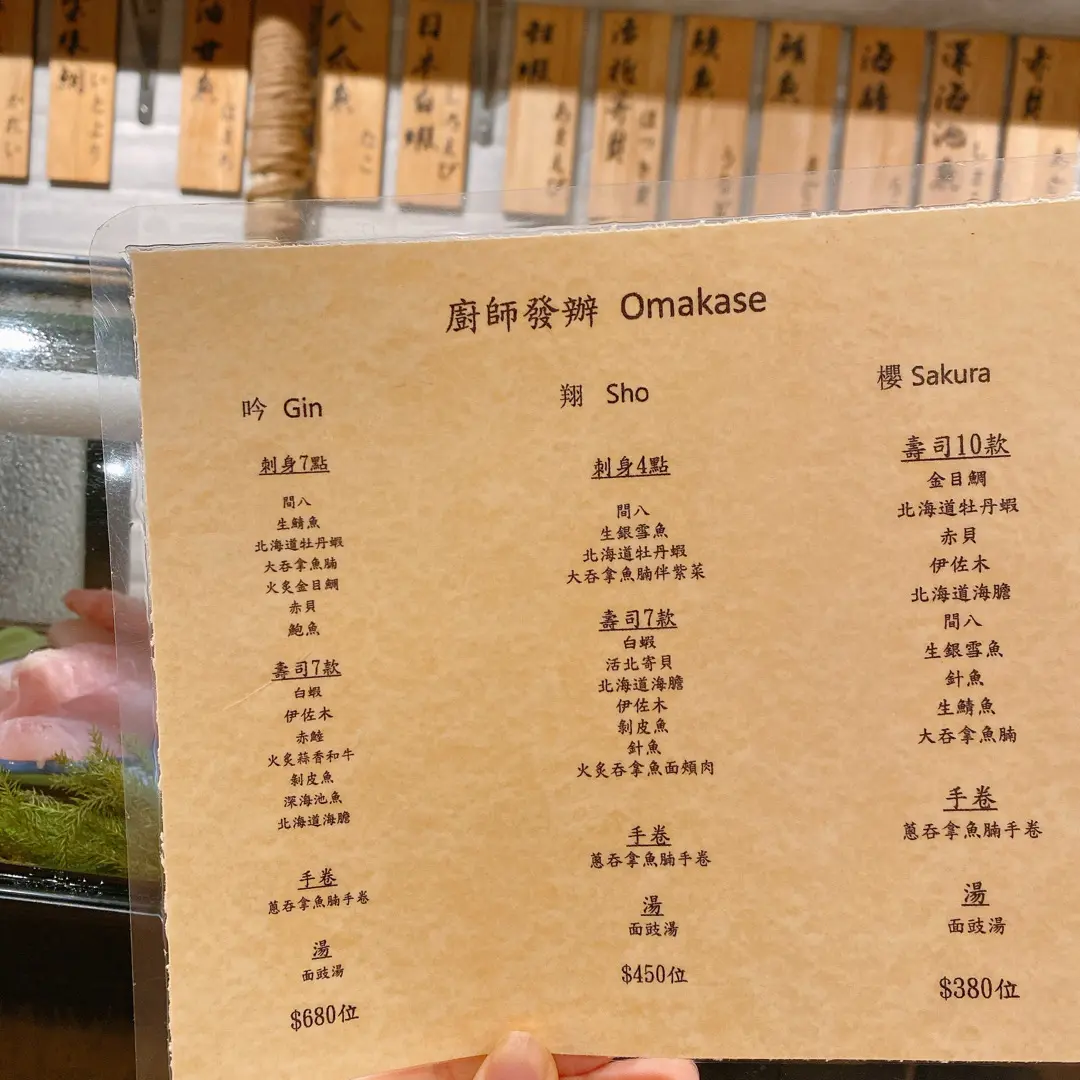 いとより
油甘魚
はまち
八爪魚
たこ
日本白蝦
しろえび
甜蝦
あまえび
活北寄貝
ほっきがい
鯖魚
深海池魚
赤貝
廚師發辦 Omakase
吟 Gin
刺身7點
間八
生鯖魚
北海道牡丹蝦
大吞拿魚腩
火炙金目鯛
赤貝
鮑魚
壽司7款
白蝦
伊佐木
赤鯥
火炙蒜香和牛
剝皮魚
深海池魚
北海道海膽
手卷
蔥吞拿魚腩手卷
湯
面豉湯
$680位
翔 Sho
刺身4點
間八
生銀雪魚
北海道牡丹蝦
大吞拿魚腩伴紫菜
壽司7款
白蝦
活北寄貝
北海道海膽
伊佐木
剝皮魚
針魚
火炙吞拿魚面頰肉
手卷
蔥吞拿魚腩手卷
湯
面豉湯
$450位
櫻 Sakura
壽司10款
金目鯛
北海道牡丹蝦
赤貝
伊佐木
北海道海膽
間八
生銀雪魚
針魚
生鯖魚
大吞拿魚腩
手卷
蔥吞拿魚腩手卷
湯
面豉湯
$380位